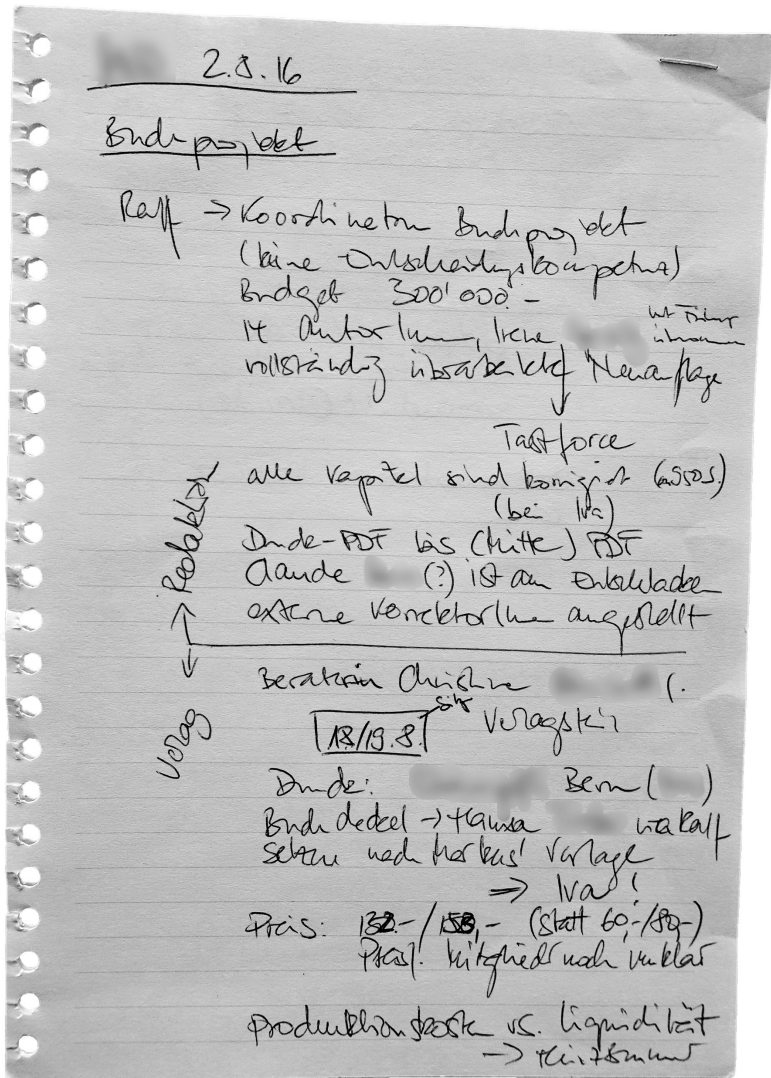 2.8.16
Buchprojekt
Ralf → Koordination Buchprojekt
(keine Entscheidungskompetenz)
Budget 300'000.-
14 AutorInnen, Irene
vollständig überarbeitete Neuauflage
Taskforce
alle Kapitel sind korrigiert
(bei Iva)
Druck-PDF bis (Mitte) PDF
Claude (?) ist am
externe KorrektorInnen angestellt
Redaktion
Verlag
Beraterin Christine
18/19.8. Sitz
Druck: Bern ( )
Buchdeckel → Hansa via Ralf
Setzen nach Markus' Vorlage
⇒ Iva!
Preis: 132.-/158,- (statt 60,-/80,-)
Preis f. Mitglieder noch unklar
Produktionskosten vs. Liquidität
→